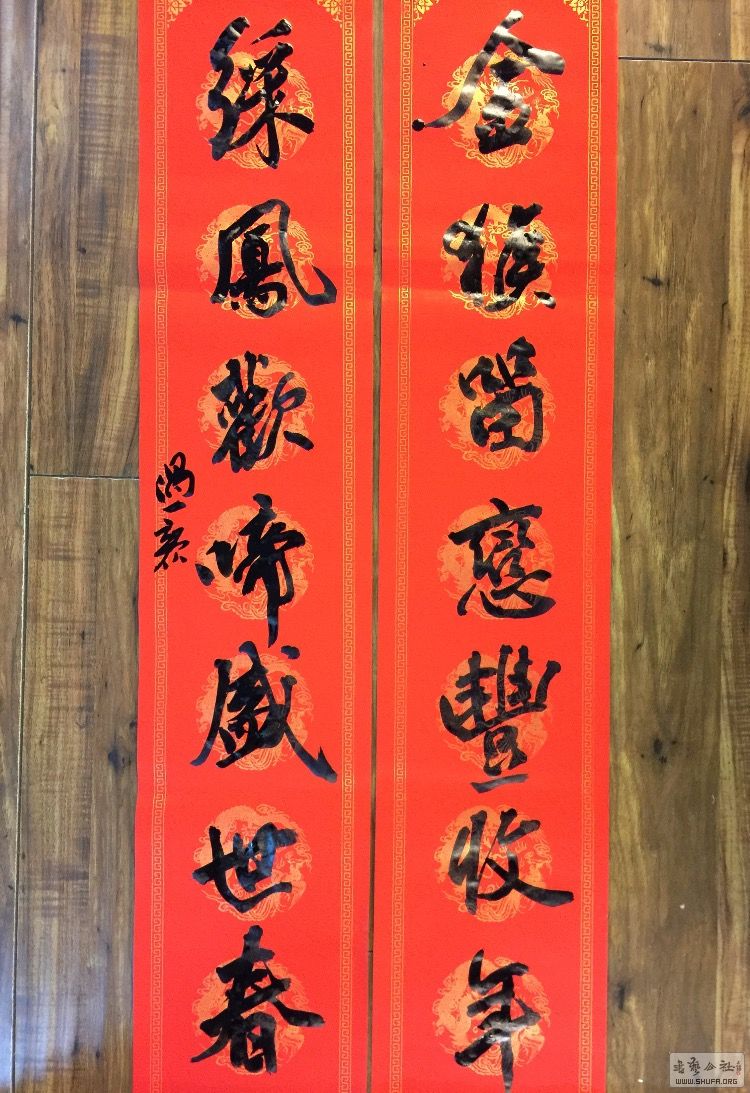 金猴留戀豐收年
綵鳳歡啼盛世春
書藝公社
WWW.SHUFA.ORG